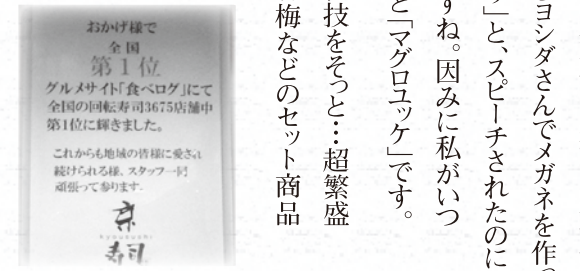 ヨシダさんでメガネを作
」と、スピーチされたのに
すね。因みに私がいつ
と「マグロユッケ」です。
技をそっと…超繁盛
梅などのセット商品
おかげ様で
全国
第1位
グルメサイト「食べログ」にて
全国の回転寿司3675店舗中
第1位に輝きました。
これからも地域の皆様に愛され
続けられる様、スタッフ一同
頑張って参ります。
京